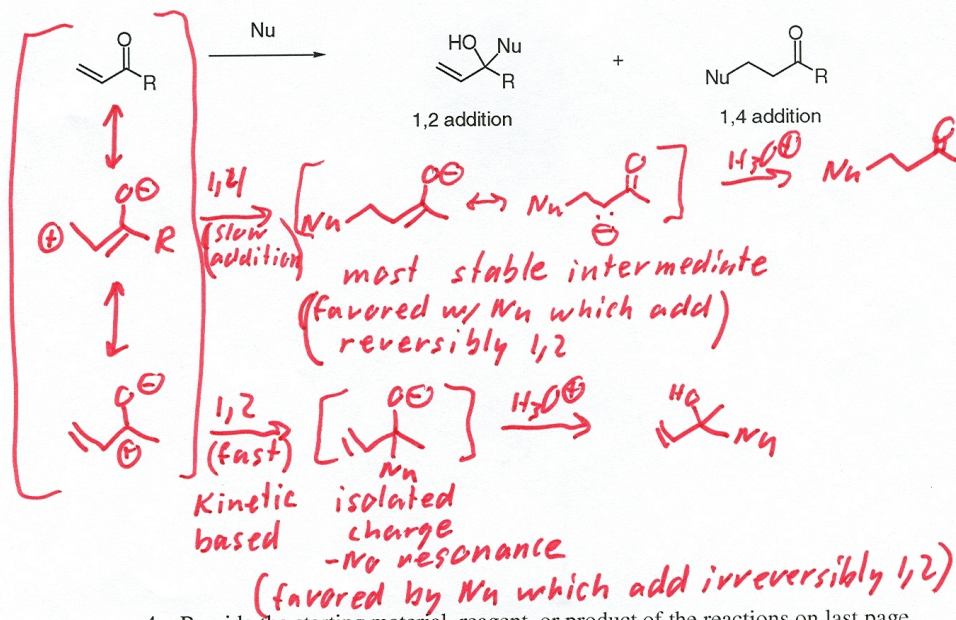 O
R
Nu
HO Nu
R
+
Nu
O
R
1,2 addition
1,4 addition
O⊖
⊕
R
1,4
(slow
addition)
Nu
O⊖
Nu
O
⊖
H₃O⊕
Nu
O
most stable intermediate
(favored w/ Nu which add)
reversibly 1,2
O⊖
⊕
1,2
(fast)
Kinetic
based
O⊖
Nu
isolated
charge
-No resonance
H₃O⊕
HO
Nu
(favored by Nu which add irreversibly 1,2)
Provide the starting material, reagent, or product of the reactions on last page